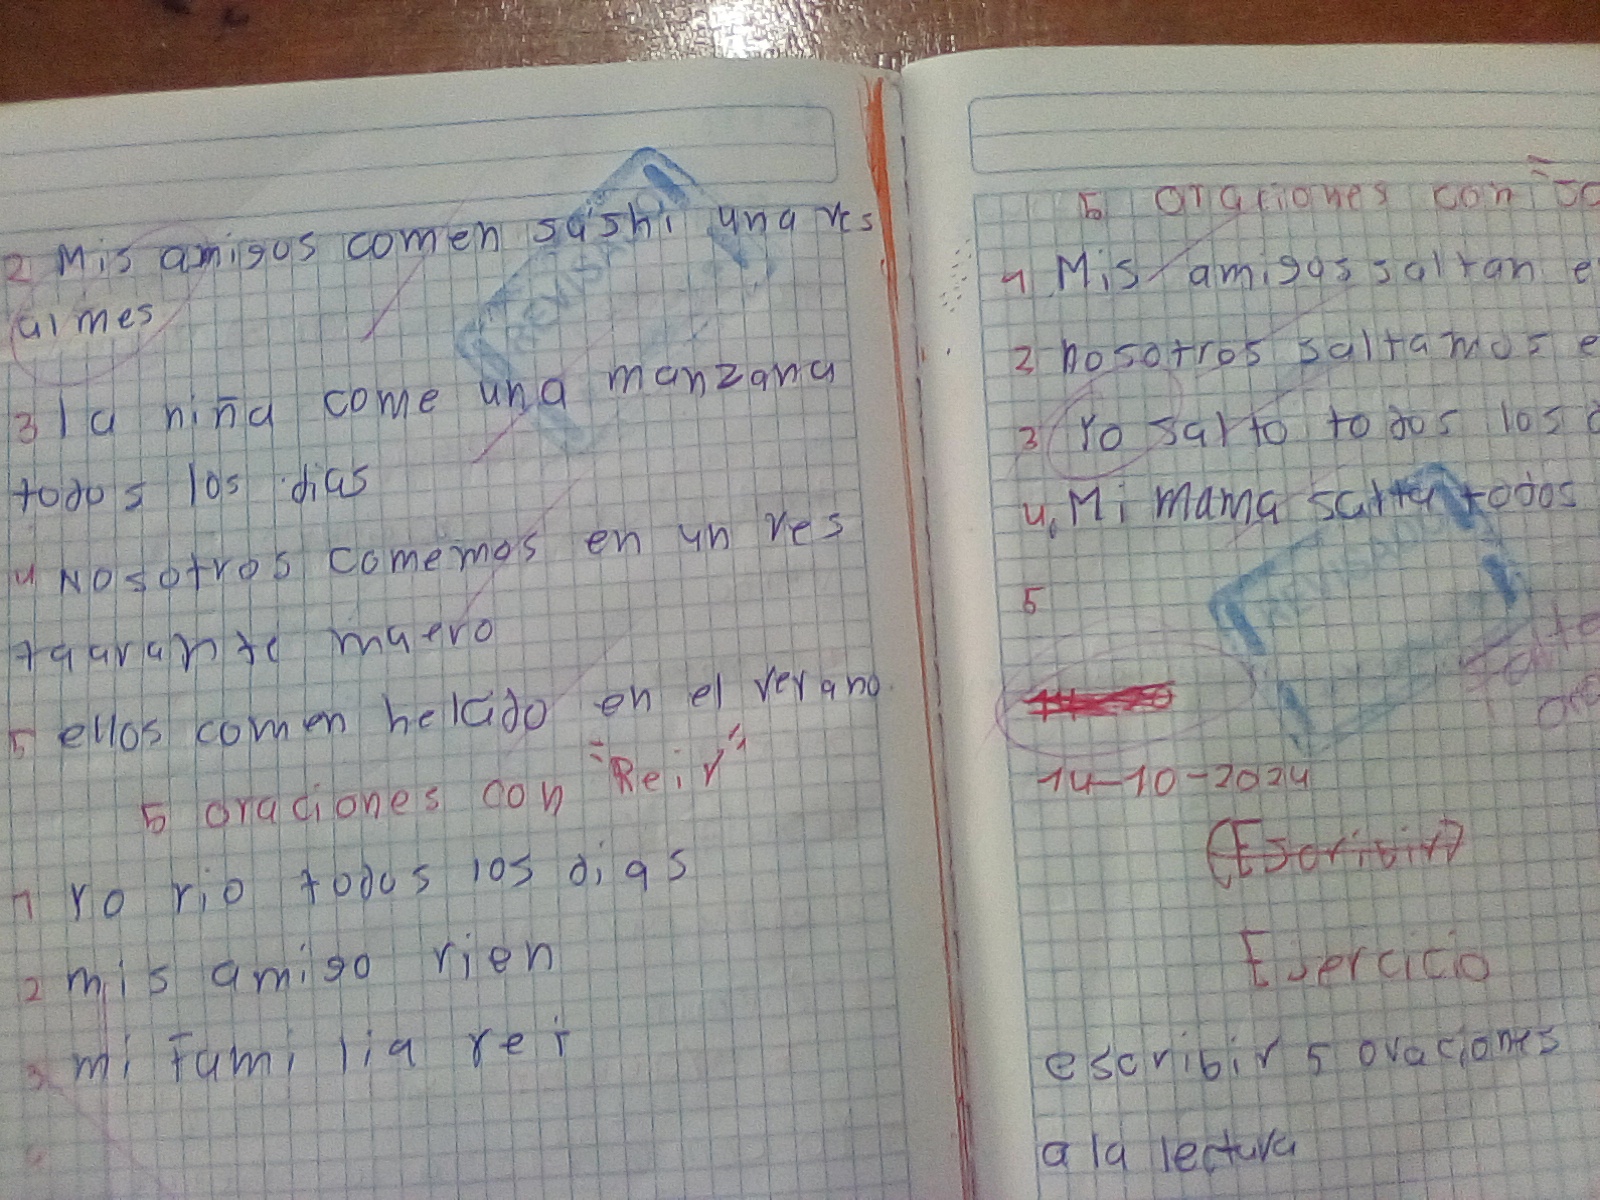 2 Mis amigos comen sashi una ves
al mes
3 la niña come una manzana
todos los dias
4 Nosotros comemos en un res
taurante nuevo
5 ellos comen helado en el verano.
5 oraciones con "Reir"
1 yo rio todos los dias
2 mis amigo rien
3 mi familia rei
REVISADO
5 oraciones con
1 Mis amigos saltan e
2 nosotros saltamos e
3 Yo salto todos los d
4. Mi mama salta todos
5
REVISADO
14-10-2024
(Escribir)
Ejercicio
escribir 5 oraciones
a la lectura